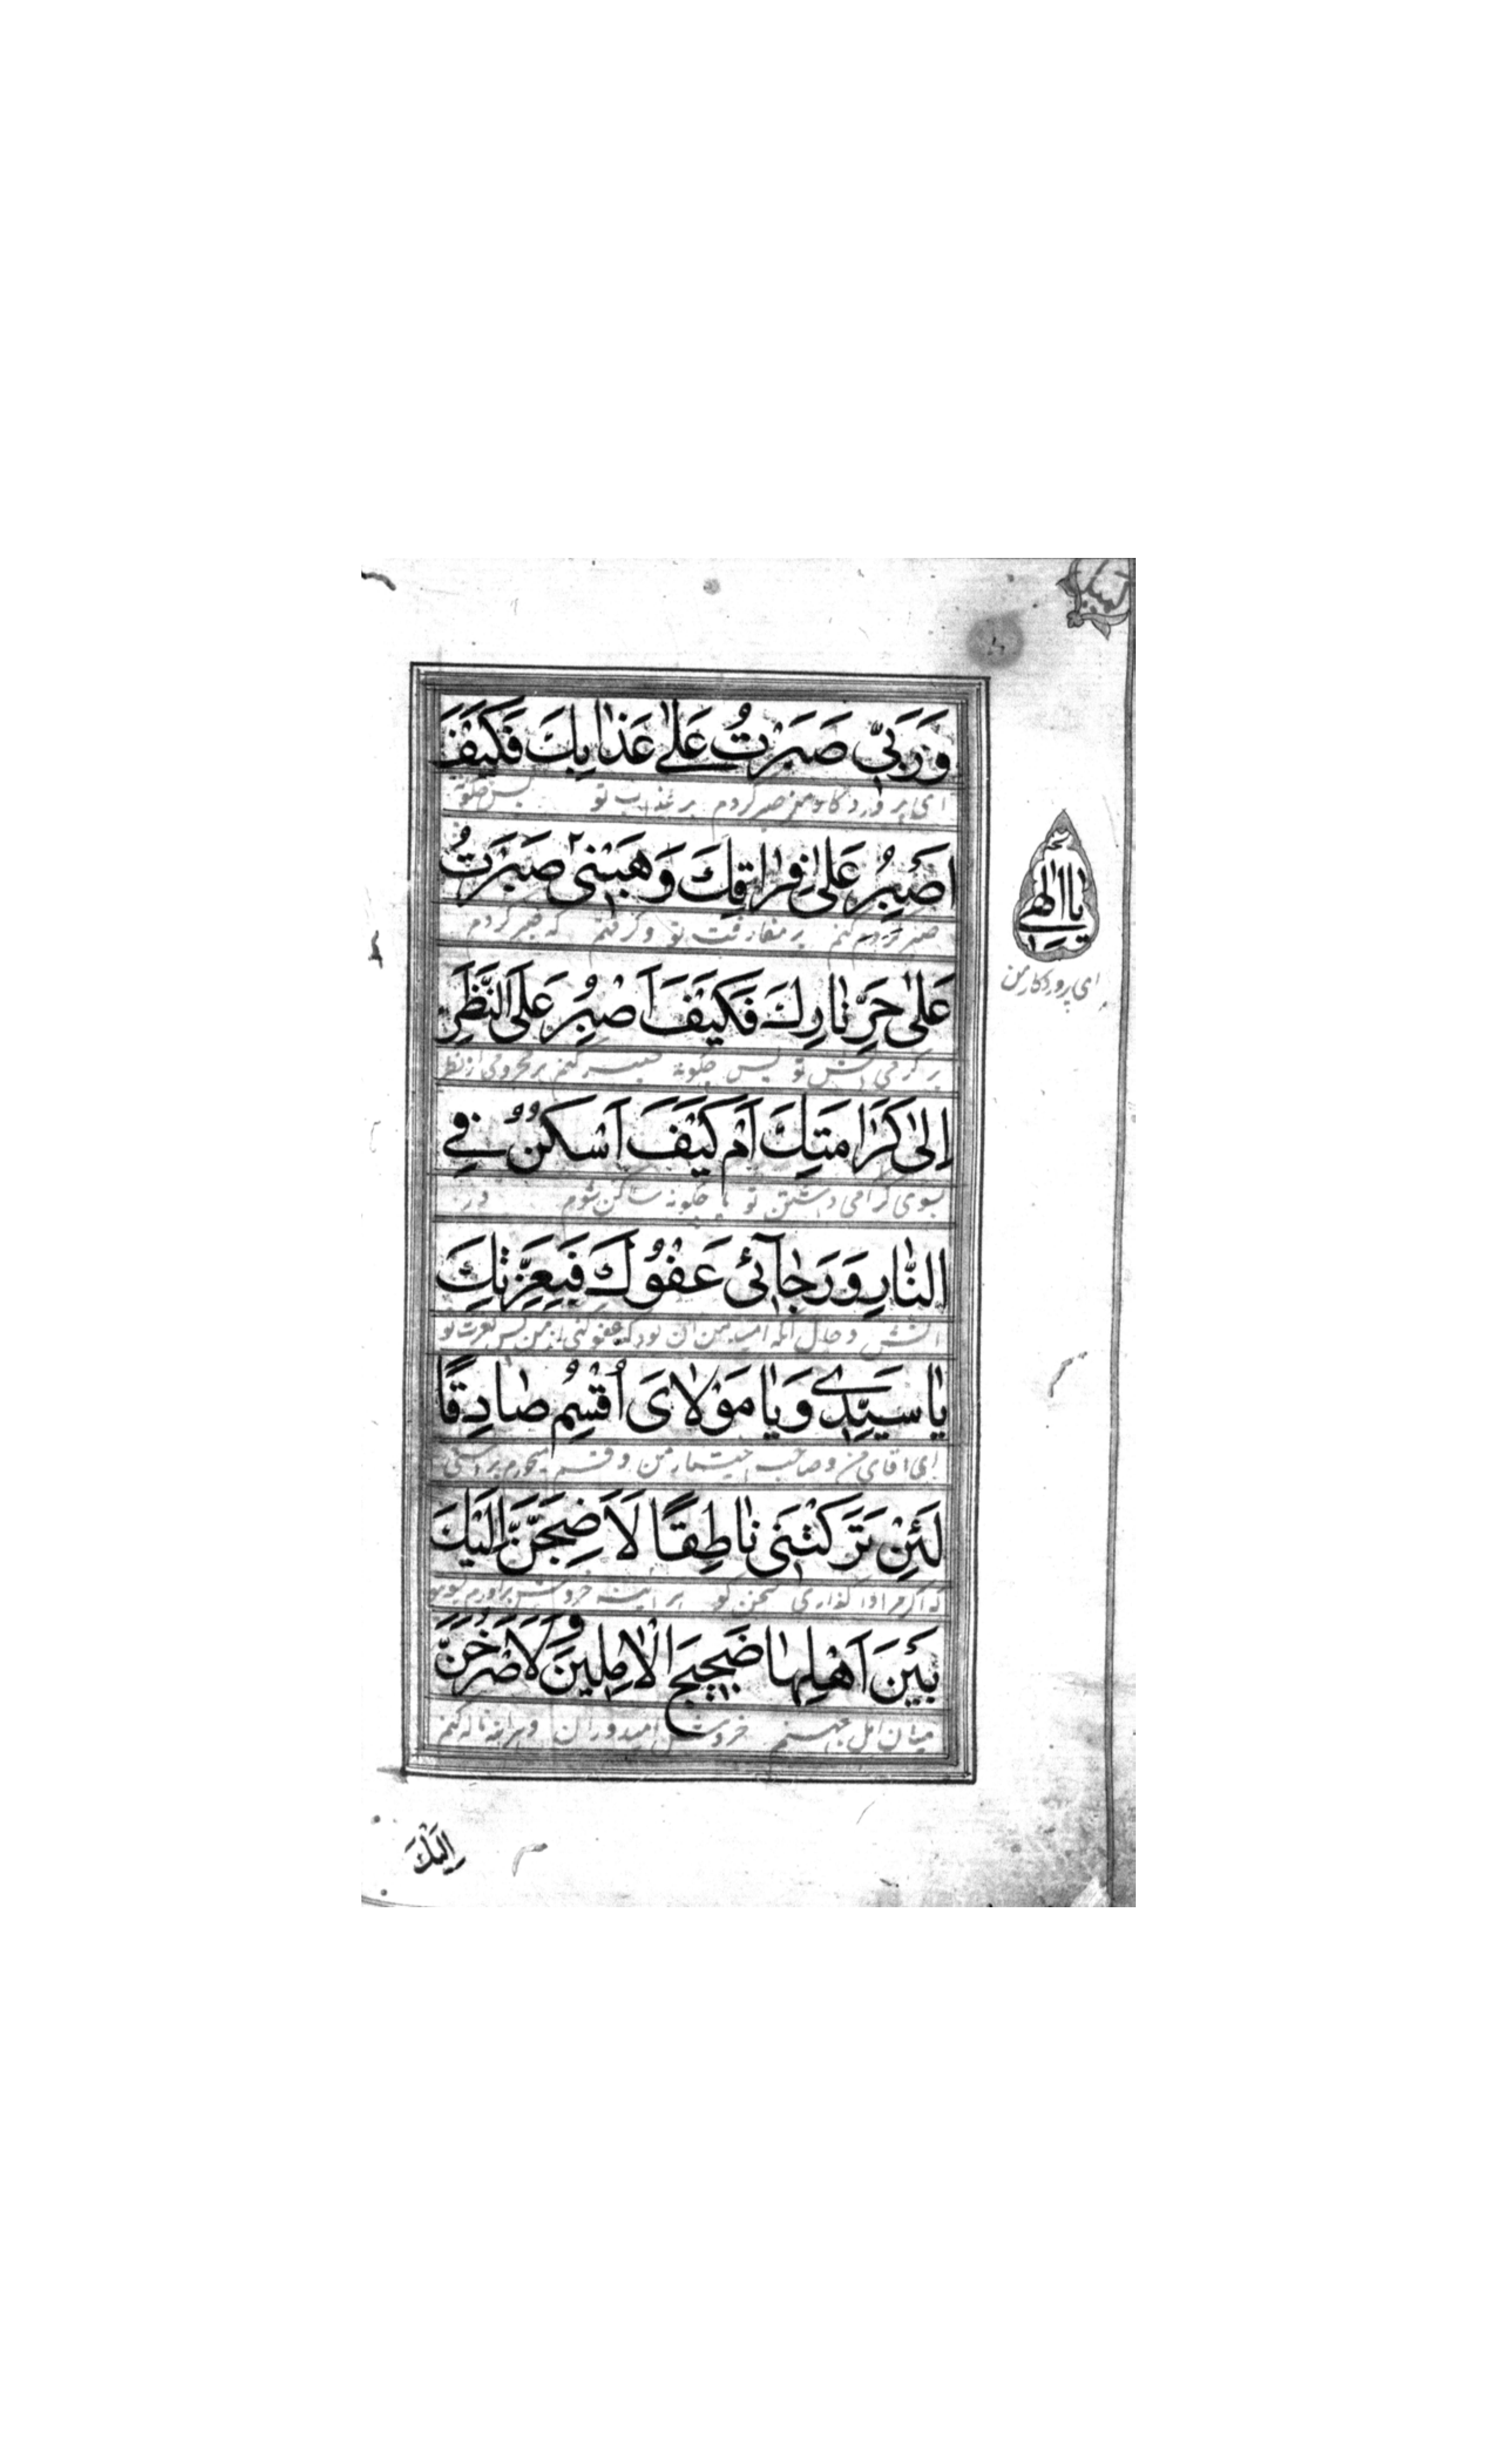 وَرَبِّي صَبَرْتُ عَلىٰ عَذٰابِكَ فَكَيْفَ
ای پروردگار من صبر کردم بر عذاب تو پس چگونه
اَصْبِرُ عَلىٰ فِرٰاقِكَ وَهَبْنِي صَبَرْتُ
صبر کنم بر مفارقت تو و گرفتم که صبر کردم
عَلىٰ حَرِّ نٰارِكَ فَكَيْفَ اَصْبِرُ عَلَى النَّظَرِ
بر گرمی آتش تو پس چگونه صبر کنم بر محرومی از نظر
اِلىٰ كَرٰامَتِكَ اَمْ كَيْفَ اَسْكُنُ فِي
بسوی گرامی داشتن تو یا چگونه ساکن شوم در
النّٰارِ وَرَجٰآئي عَفْوُكَ فَبِعِزَّتِكَ
آتش و حال آنکه امید من آن بود که عفو کنی از من پس بعزت تو
يٰا سَيِّدِي وَيٰا مَوْلاٰىَ اُقْسِمُ صٰادِقًا
ای آقای من و صاحب اختیار من و قسم میخورم براستی
لَئِنْ تَرَكْتَنِي نٰاطِقًا لَاَضِجَّنَّ اِلَيْكَ
که اگر مرا واگذاری سخن گو هر آینه خروش برآورم بسوی تو
بَيْنَ اَهْلِهٰا ضَجِيجَ الْاٰمِلِينَ وَلَاَصْرُخَنَّ
میان اهل جهنم خروش امیدواران و هرآینه ناله کنم
يٰا اِلٰهِي
ای پروردکار من
اِلَيْكَ